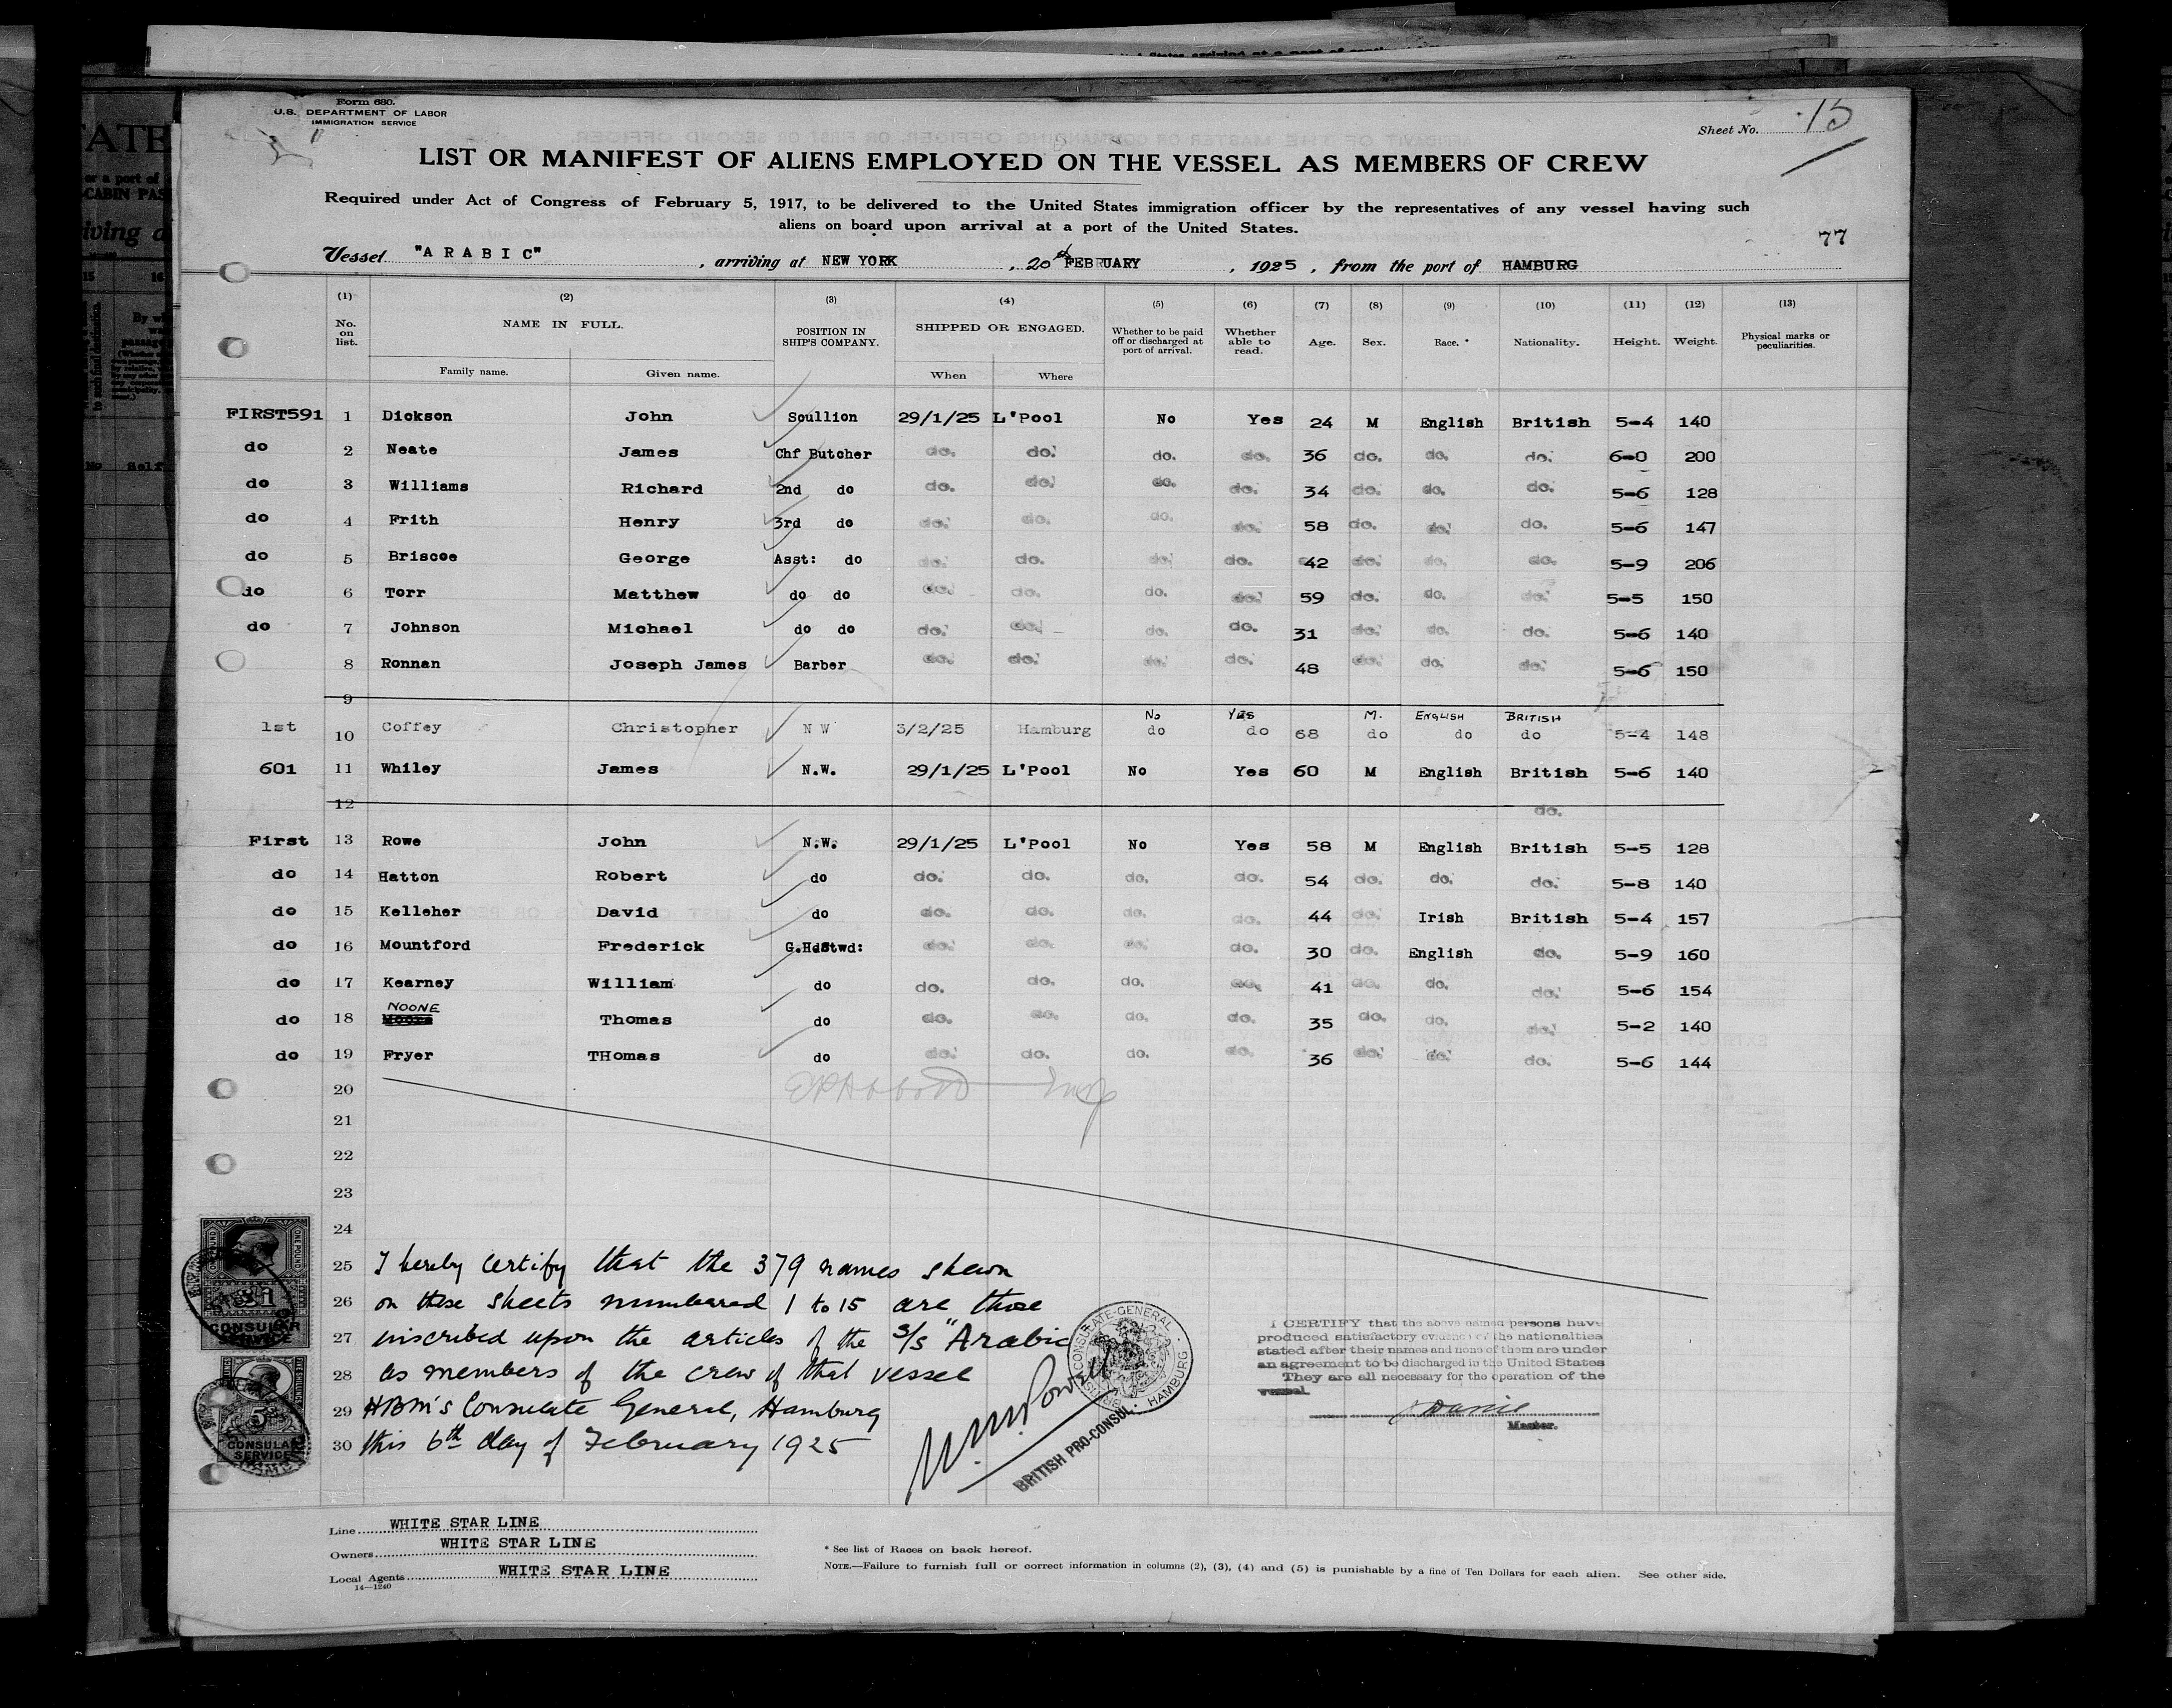 Form 680.
U.S. DEPARTMENT OF LABOR
IMMIGRATION SERVICE
Sheet No. 15
LIST OR MANIFEST OF ALIENS EMPLOYED ON THE VESSEL AS MEMBERS OF CREW
Required under Act of Congress of February 5, 1917, to be delivered to the United States immigration officer by the representatives of any vessel having such
aliens on board upon arrival at a port of the United States.
77
Vessel "ARABIC", arriving at NEW YORK, 20th FEBRUARY, 1925, from the port of HAMBURG
(1) (2) (3) (4) (5) (6) (7) (8) (9) (10) (11) (12) (13)
No. on list. NAME IN FULL. POSITION IN SHIP'S COMPANY. SHIPPED OR ENGAGED. Whether to be paid off or discharged at port of arrival. Whether able to read. Age. Sex. Race. * Nationality. Height. Weight. Physical marks or peculiarities.
Family name. Given name. When Where
FIRST591 1 Dickson John Scullion 29/1/25 L'Pool No Yes 24 M English British 5-4 140
do 2 Neate James Chf Butcher do. do. do. do. 36 do. do. do. 6-0 200
do 3 Williams Richard 2nd do do. do. do. do. 34 do. do. do. 5-6 128
do 4 Frith Henry 3rd do do. do. do. do. 58 do. do. do. 5-6 147
do 5 Briscoe George Asst: do do. do. do. do. 42 do. do. do. 5-9 206
do 6 Torr Matthew do do do. do. do. do. 59 do. do. do. 5-5 150
do 7 Johnson Michael do do do. do. do. do. 31 do. do. do. 5-6 140
8 Ronnan Joseph James Barber do. do. do. do. 48 do. do. do. 5-6 150
9
No Yes M. ENGLISH BRITISH
1st 10 Coffey Christopher N W 3/2/25 Hamburg do do 68 do do do 5-4 148
601 11 Whiley James N.W. 29/1/25 L'Pool No Yes 60 M English British 5-6 140
12 do.
First 13 Rowe John N.W. 29/1/25 L'Pool No Yes 58 M English British 5-5 128
do 14 Hatton Robert do do. do. do. do. 54 do. do. do. 5-8 140
do 15 Kelleher David do do. do. do. do. 44 do. Irish British 5-4 157
do 16 Mountford Frederick G.HdStwd: do. do. do. do. 30 do. English do. 5-9 160
do 17 Kearney William do do. do. do. do. 41 do. do. do. 5-6 154
NOONE
do 18 Thomas do do. do. do. do. 35 do. do. do. 5-2 140
do 19 Fryer THomas do do. do. do. do. 36 do. do. do. 5-6 144
20
21
22
23
24
25 I hereby certify that the 379 names shewn
26 on these sheets numbered 1 to 15 are those
27 inscribed upon the articles of the s/s "Arabic
28 as members of the crew of that vessel
29 HBM's Consulate General, Hamburg
30 this 6th day of February 1925
ONE POUND
£1
CONSULAR
SERVICE
5
CONSULAR
SERVICE
CONSULATE-GENERAL
HAMBURG
BRITISH PRO-CONSUL.
I CERTIFY that the above named persons have
produced satisfactory evidence of the nationalities
stated after their names and none of them are under
an agreement to be discharged in the United States
They are all necessary for the operation of the
vessel.
Master.
Line WHITE STAR LINE
Owners WHITE STAR LINE
Local Agents WHITE STAR LINE
14—1240
* See list of Races on back hereof.
NOTE.—Failure to furnish full or correct information in columns (2), (3), (4) and (5) is punishable by a fine of Ten Dollars for each alien. See other side.